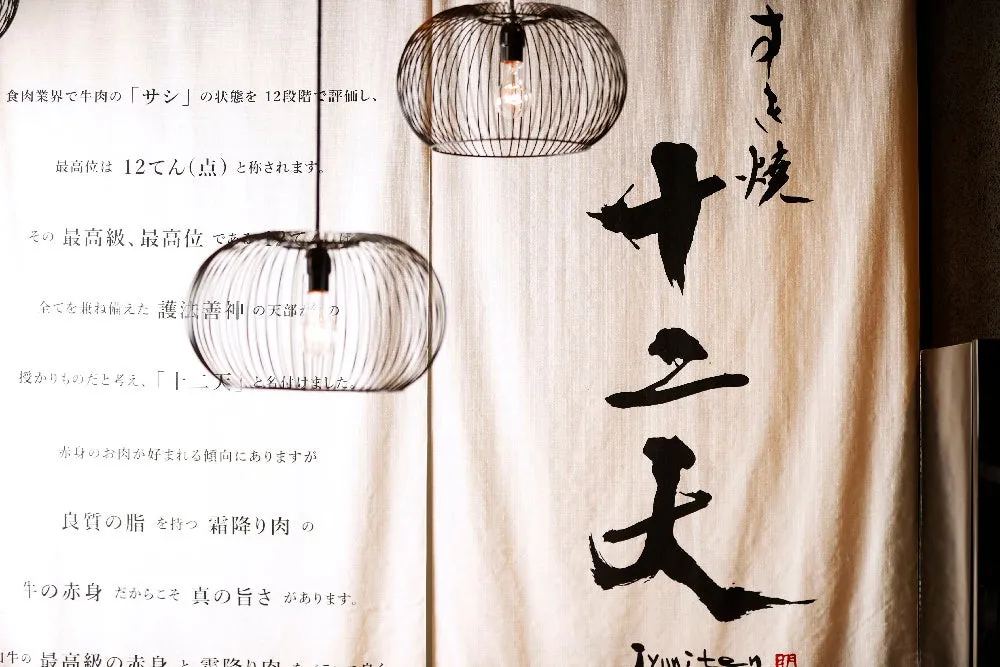 食肉業界で牛肉の「サシ」の状態を 12段階で評価し、
最高位は 12てん(点) と称されます。
その 最高級、最高位 である
全てを兼ね備えた 護法善神 の天部
授かりものだと考え、「十二天」と名付けました。
赤身のお肉が好まれる傾向にありますが
良質の脂 を持つ 霜降り肉 の
牛の赤身 だからこそ 真の旨さ があります。
牛の 最高級の赤身 と 霜降り肉
すき焼
十二天
jyuniten